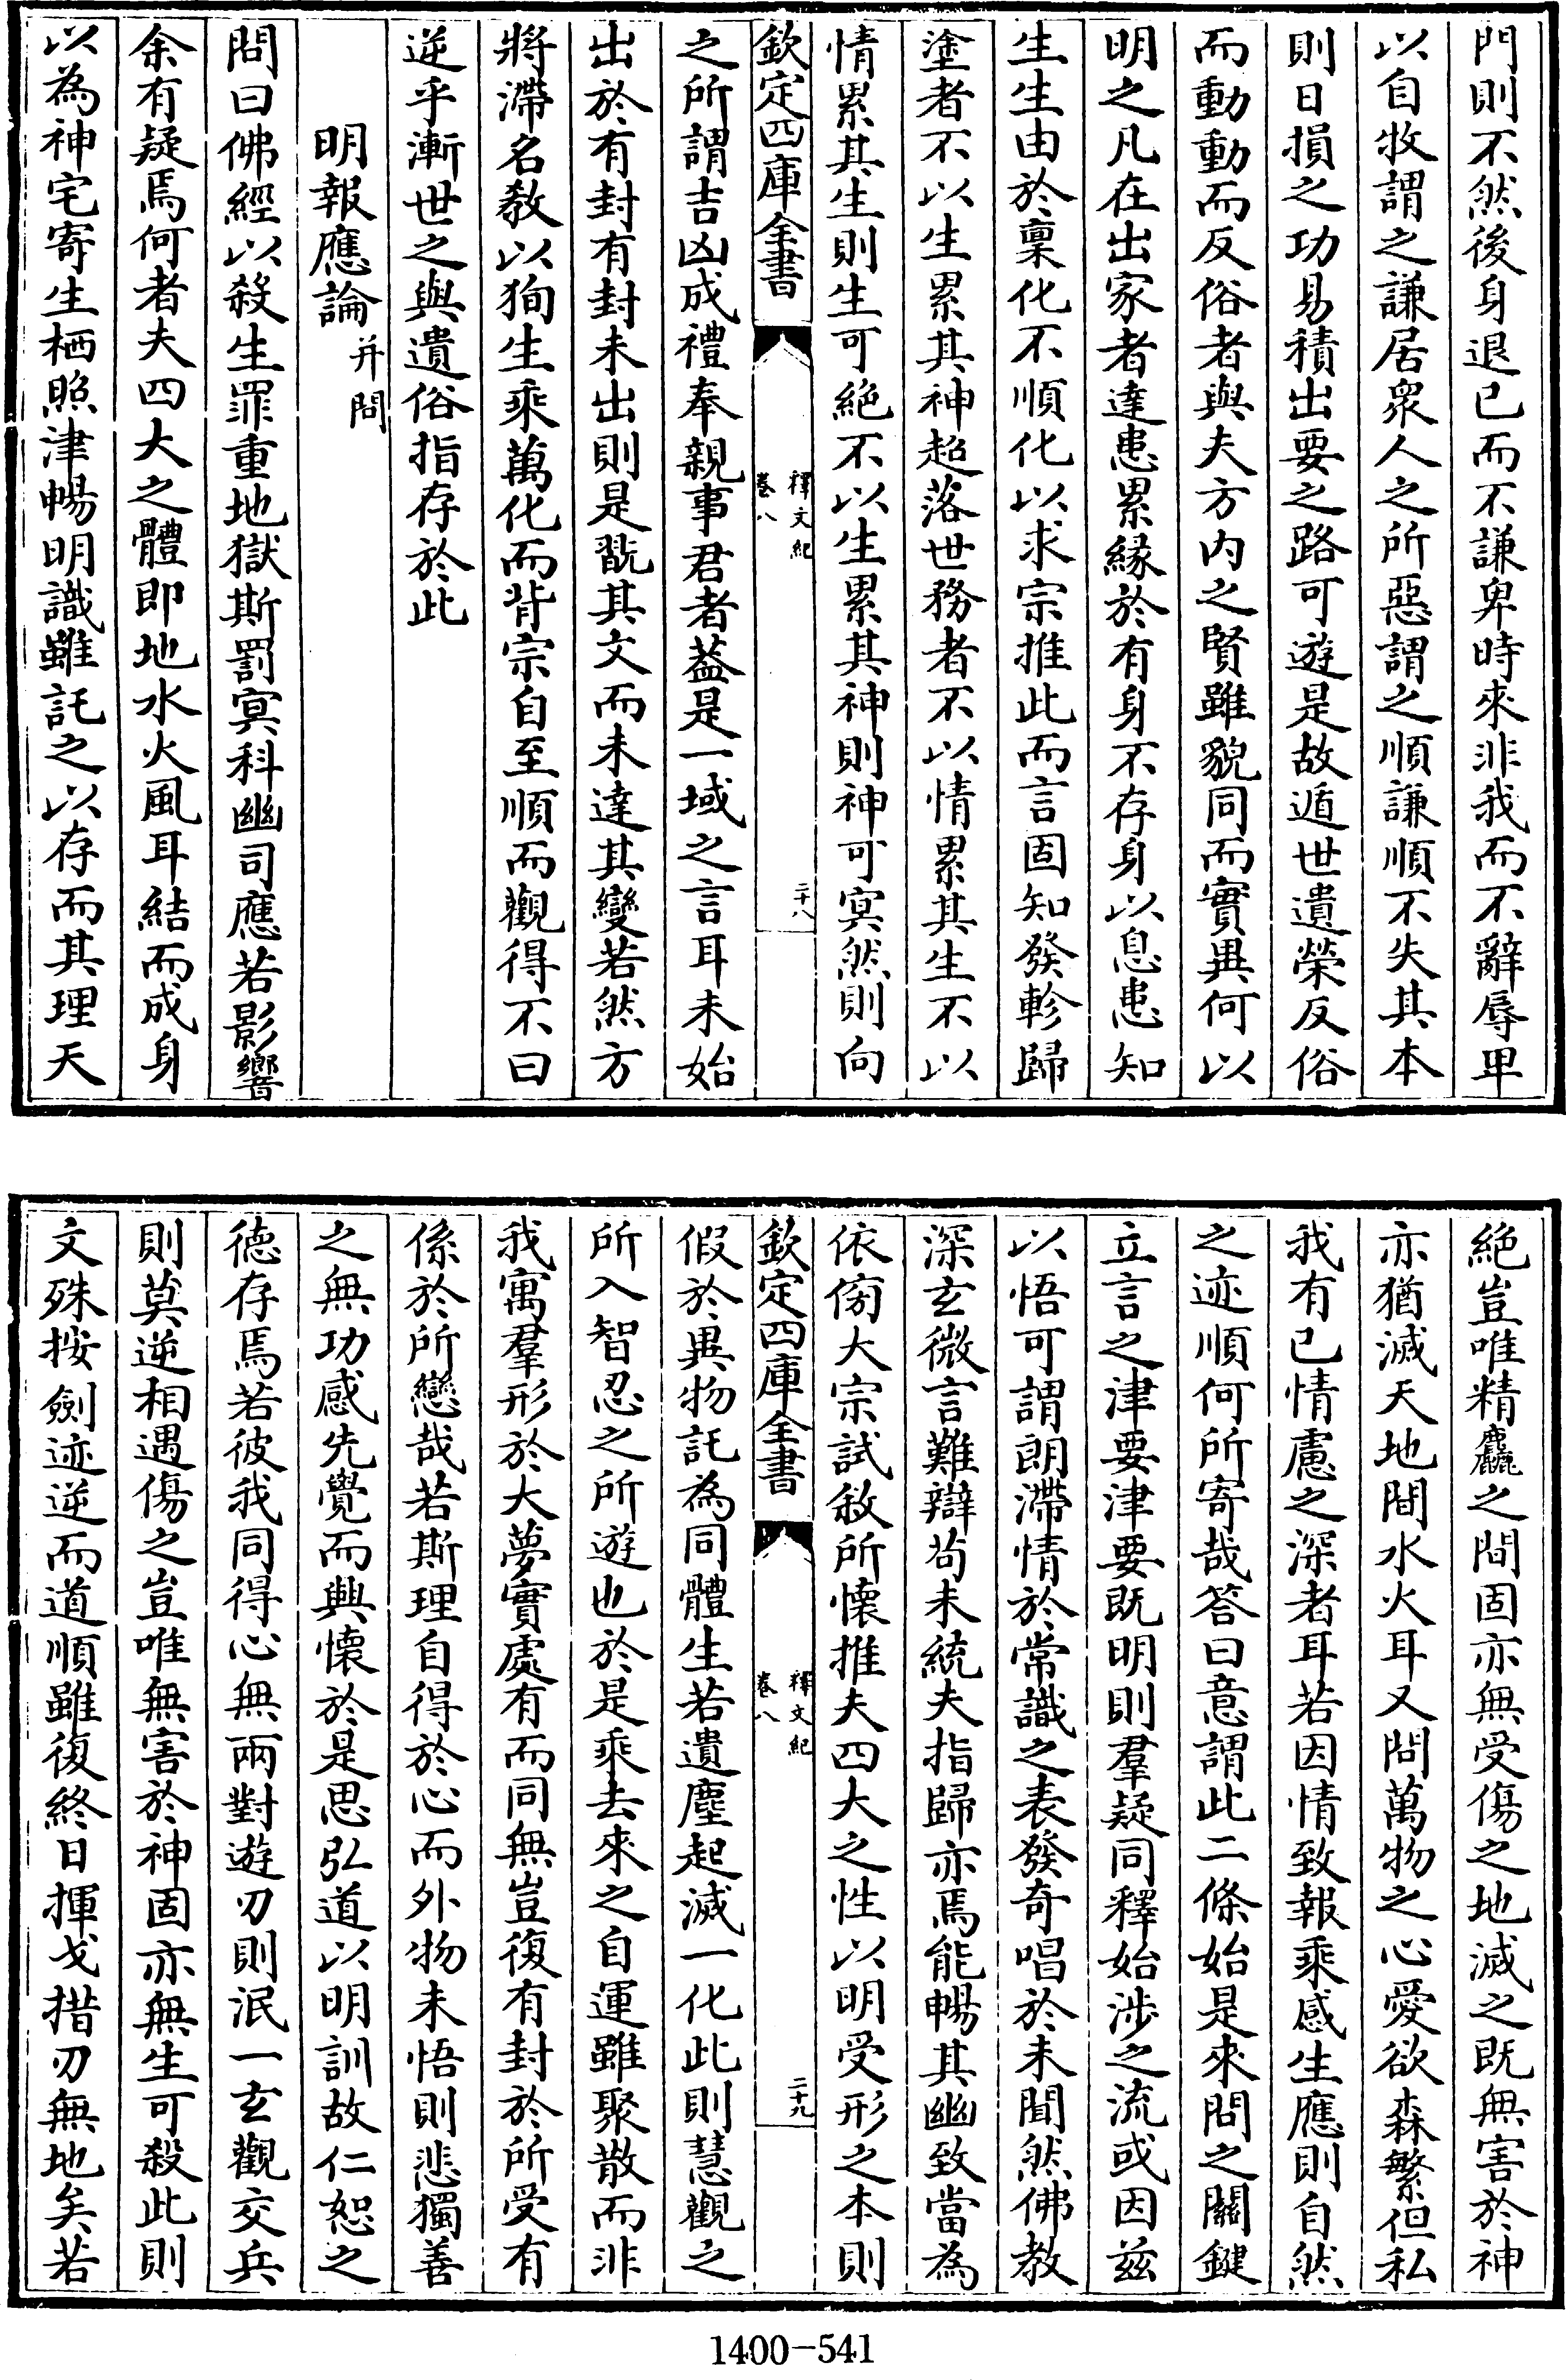 門則不然後身退已而不謙卑時來非我而不辭辱卑
以自牧謂之謙居衆人之所惡謂之順謙順不失其本
則日損之功易積出要之路可遊是故遁世遺榮反俗
而動動而反俗者與夫方内之賢雖貌同而實異何以
明之凡在出家者達患累縁於有身不存身以息患知
生生由於稟化不順化以求宗推此而言固知發軫歸
塗者不以生累其神超落世務者不以情累其生不以
情累其生則生可絶不以生累其神則神可冥然則向
欽定四庫全書
釋文紀
卷八
二十八
之所謂吉凶成禮奉親事君者葢是一域之言耳未始
出於有封有封未出則是翫其文而未達其變若然方
將滯名教以狥生乘萬化而背宗自至順而觀得不曰
逆乎漸世之與遺俗指存於此
明報應論并問
問曰佛經以殺生罪重地獄斯罰冥科幽司應若影響
余有疑焉何者夫四大之體即地水火風耳結而成身
以為神宅寄生栖照津暢明識雖託之以存而其理天
絶豈唯精麤之間固亦無受傷之地滅之既無害於神
亦猶滅天地間水火耳又問萬物之心愛欲森繁但私
我有已情慮之深者耳若因情致報乘感生應則自然
之迹順何所寄哉答曰意謂此二條始是來問之關鍵
立言之津要津要既明則羣疑同釋始涉之流或因兹
以悟可謂朗滯情於常識之表發奇唱於未聞然佛教
深玄微言難辯茍未統夫指歸亦焉能暢其幽致當為
依傍大宗試敘所懷推夫四大之性以明受形之本則
欽定四庫全書
釋文紀
卷八
二十九
假於異物託為同體生若遺塵起滅一化此則慧觀之
所入智忍之所遊也於是乘去來之自運雖聚散而非
我寓羣形於大夢實處有而同無豈復有封於所受有
係於所戀哉若斯理自得於心而外物未悟則悲獨善
之無功感先覺而興懷於是思弘道以明訓故仁恕之
德存焉若彼我同得心無兩對遊刃則泯一玄觀交兵
則莫逆相遇傷之豈唯無害於神固亦無生可殺此則
文殊按劍迹逆而道順雖復終日揮戈措刃無地矣若
1400-541